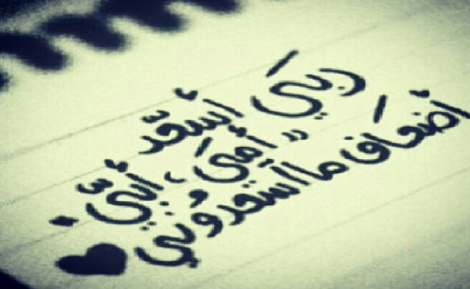 ربي أسعد
„ أمي ، أبي "
أضعاف ما أسعدوني